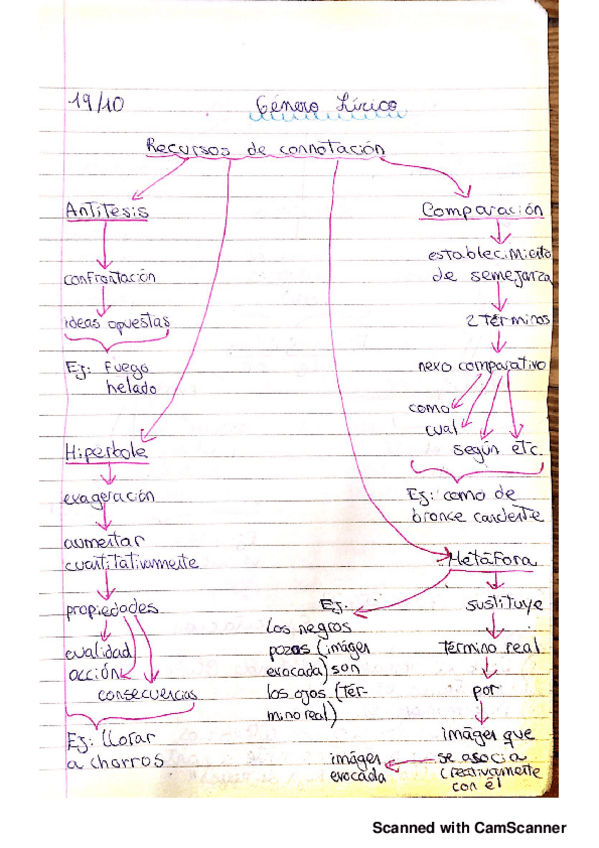 19/10
Género Lírico
Recursos de connotación
Antítesis
confrontación
ideas opuestas
Ej: fuego
helado
Hiperbole
exageración
aumentar
cuantitativamente
propiedades
cualidad
acción
consecuencias
Ej: llorar
a chorros
Comparación
establecimiento
de semejanza
2 términos
nexo comparativo
como
cual
según etc.
Ej: como de
bronce candente
Metáfora
Ej.
los negros
pozos (imágen
evocada) son
los ojos (tér-
mino real)
sustituye
término real
por
imágen que
se asocia
creativamente
con él
imágen
evocada
Scanned with CamScanner